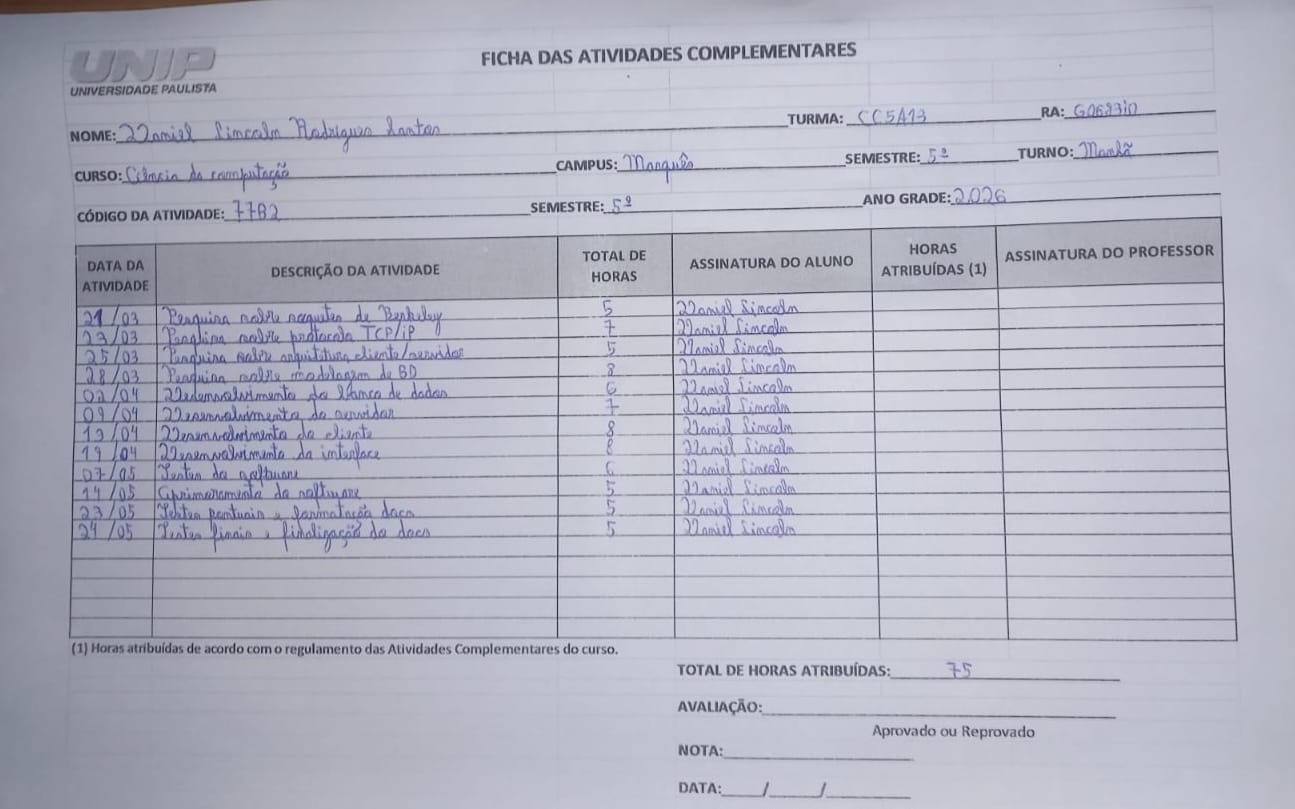 UNIP
UNIVERSIDADE PAULISTA
FICHA DAS ATIVIDADES COMPLEMENTARES
NOME: Daniel Lincoln Rodrigues Santos TURMA: CC5A13 RA: G068310
CURSO: Ciência da computação CAMPUS: Marquês SEMESTRE: 5º TURNO: Manhã
CÓDIGO DA ATIVIDADE: 77B2 SEMESTRE: 5º ANO GRADE: 2026
DATA DA ATIVIDADE DESCRIÇÃO DA ATIVIDADE TOTAL DE HORAS ASSINATURA DO ALUNO HORAS ATRIBUÍDAS (1) ASSINATURA DO PROFESSOR
21/03 Pesquisa sobre soquetes de Berkeley 5 Daniel Lincoln
23/03 Pesquisa sobre protocolo TCP/iP 7 Daniel Lincoln
25/03 Pesquisa sobre arquitetura cliente/servidor 5 Daniel Lincoln
28/03 Pesquisa sobre modelagem de BD 8 Daniel Lincoln
02/04 Desenvolvimento do banco de dados 6 Daniel Lincoln
09/04 Desenvolvimento do servidor 7 Daniel Lincoln
13/04 Desenvolvimento do cliente 8 Daniel Lincoln
19/04 Desenvolvimento da interface 8 Daniel Lincoln
07/05 Testes do software 6 Daniel Lincoln
14/05 Aprimoramento do software 5 Daniel Lincoln
23/05 Testes pontuais e formatação docs 5 Daniel Lincoln
24/05 Testes finais e finalização do docs 5 Daniel Lincoln
(1) Horas atribuídas de acordo com o regulamento das Atividades Complementares do curso.
TOTAL DE HORAS ATRIBUÍDAS: 75
AVALIAÇÃO:
Aprovado ou Reprovado
NOTA:
DATA: / /